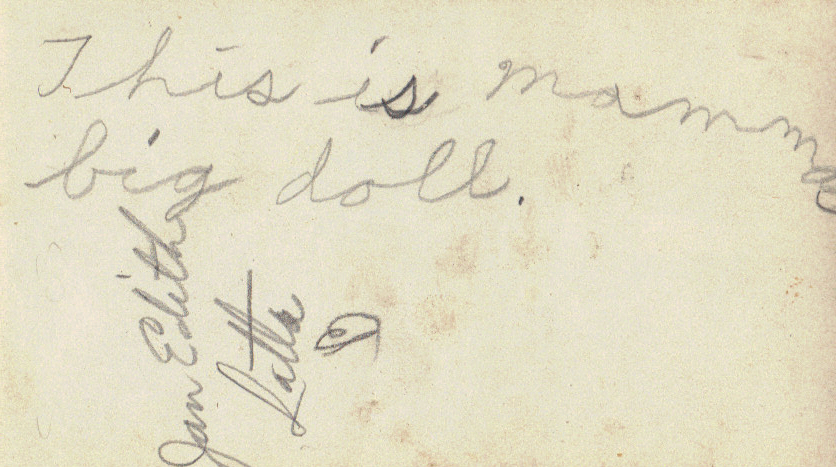 This is mammas
big doll.
Jan Edith
Latta